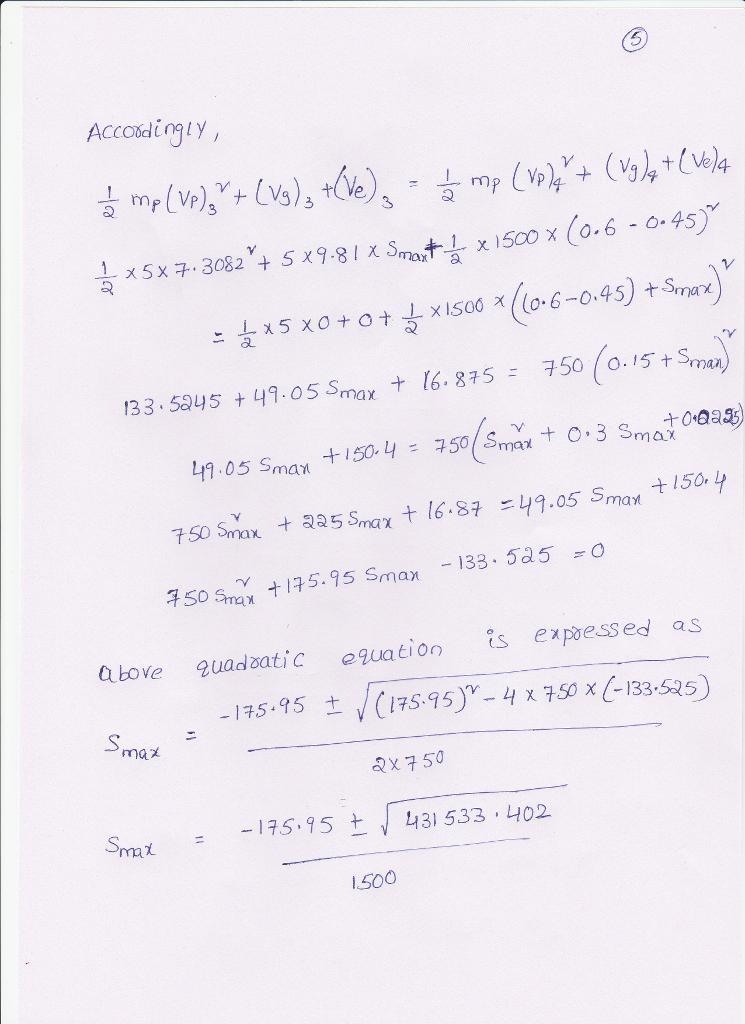 ⑤
Accordingly,
1/2 mp(Vp)₃² + (Vg)₃ + (Ve)₃ = 1/2 mp (Vp)₄² + (Vg)₄ + (Ve)₄
1/2 × 5 × 7.3082² + 5 × 9.81 × Smax + 1/2 × 1500 × (0.6 - 0.45)²
= 1/2 × 5 × 0 + 0 + 1/2 × 1500 × ((0.6 - 0.45) + Smax)²
133.5245 + 49.05 Smax + 16.875 = 750 (0.15 + Smax)²
49.05 Smax + 150.4 = 750 (Smax² + 0.3 Smax + 0.0225)
750 Smax² + 225 Smax + 16.87 = 49.05 Smax + 150.4
750 Smax² + 175.95 Smax - 133.525 = 0
above quadratic equation is expressed as
Smax = (-175.95 ± √((175.95)² - 4 × 750 × (-133.525))) / (2×750)
Smax = (-175.95 ± √(431533.402)) / 1500